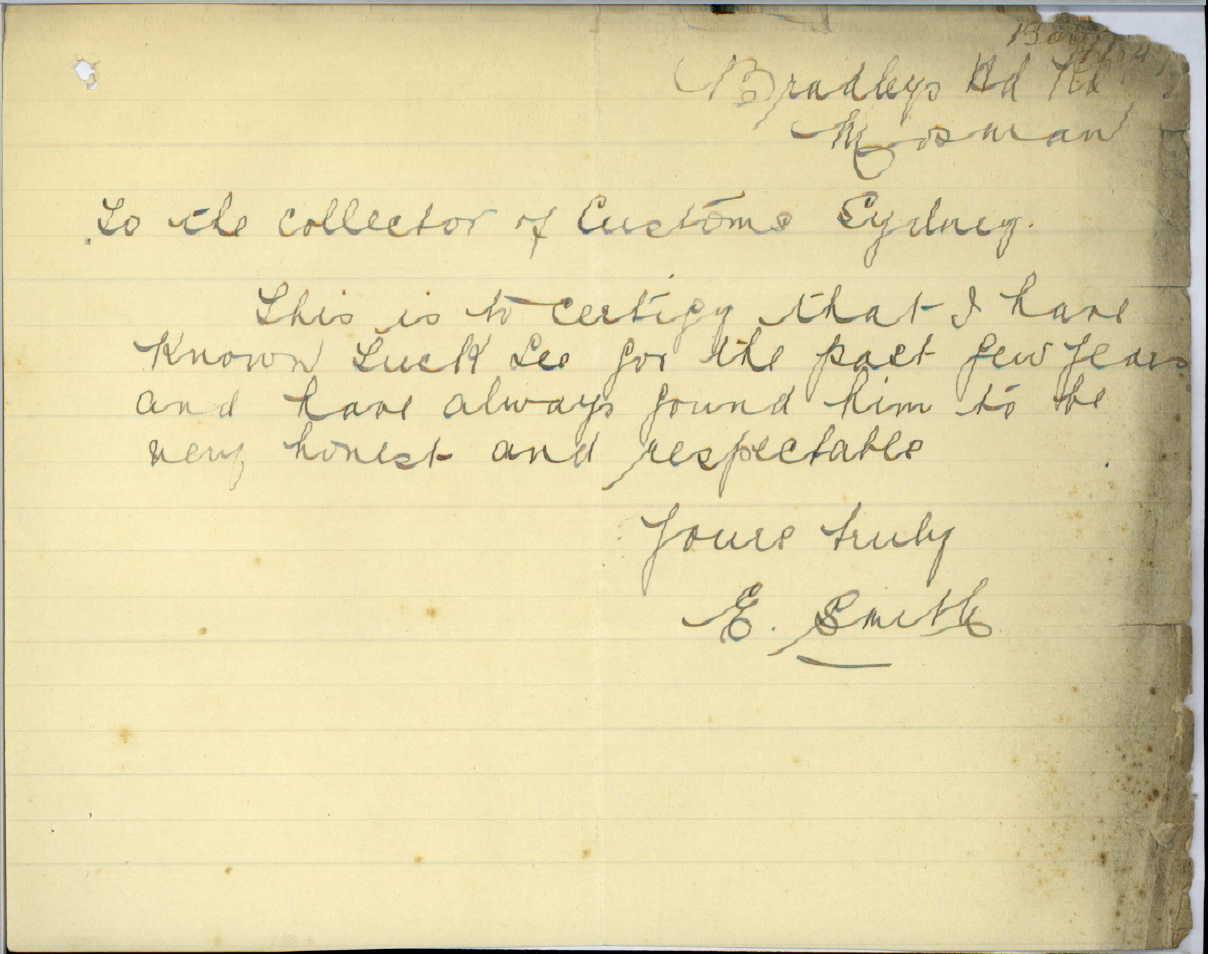 Bradleys Hd Rd
Mosman
To the collector of Customs Sydney.
This is to certify that I have
Known Luck Lee for the past few years
and have always found him to be
very honest and respectable
Yours truly
E. Smith